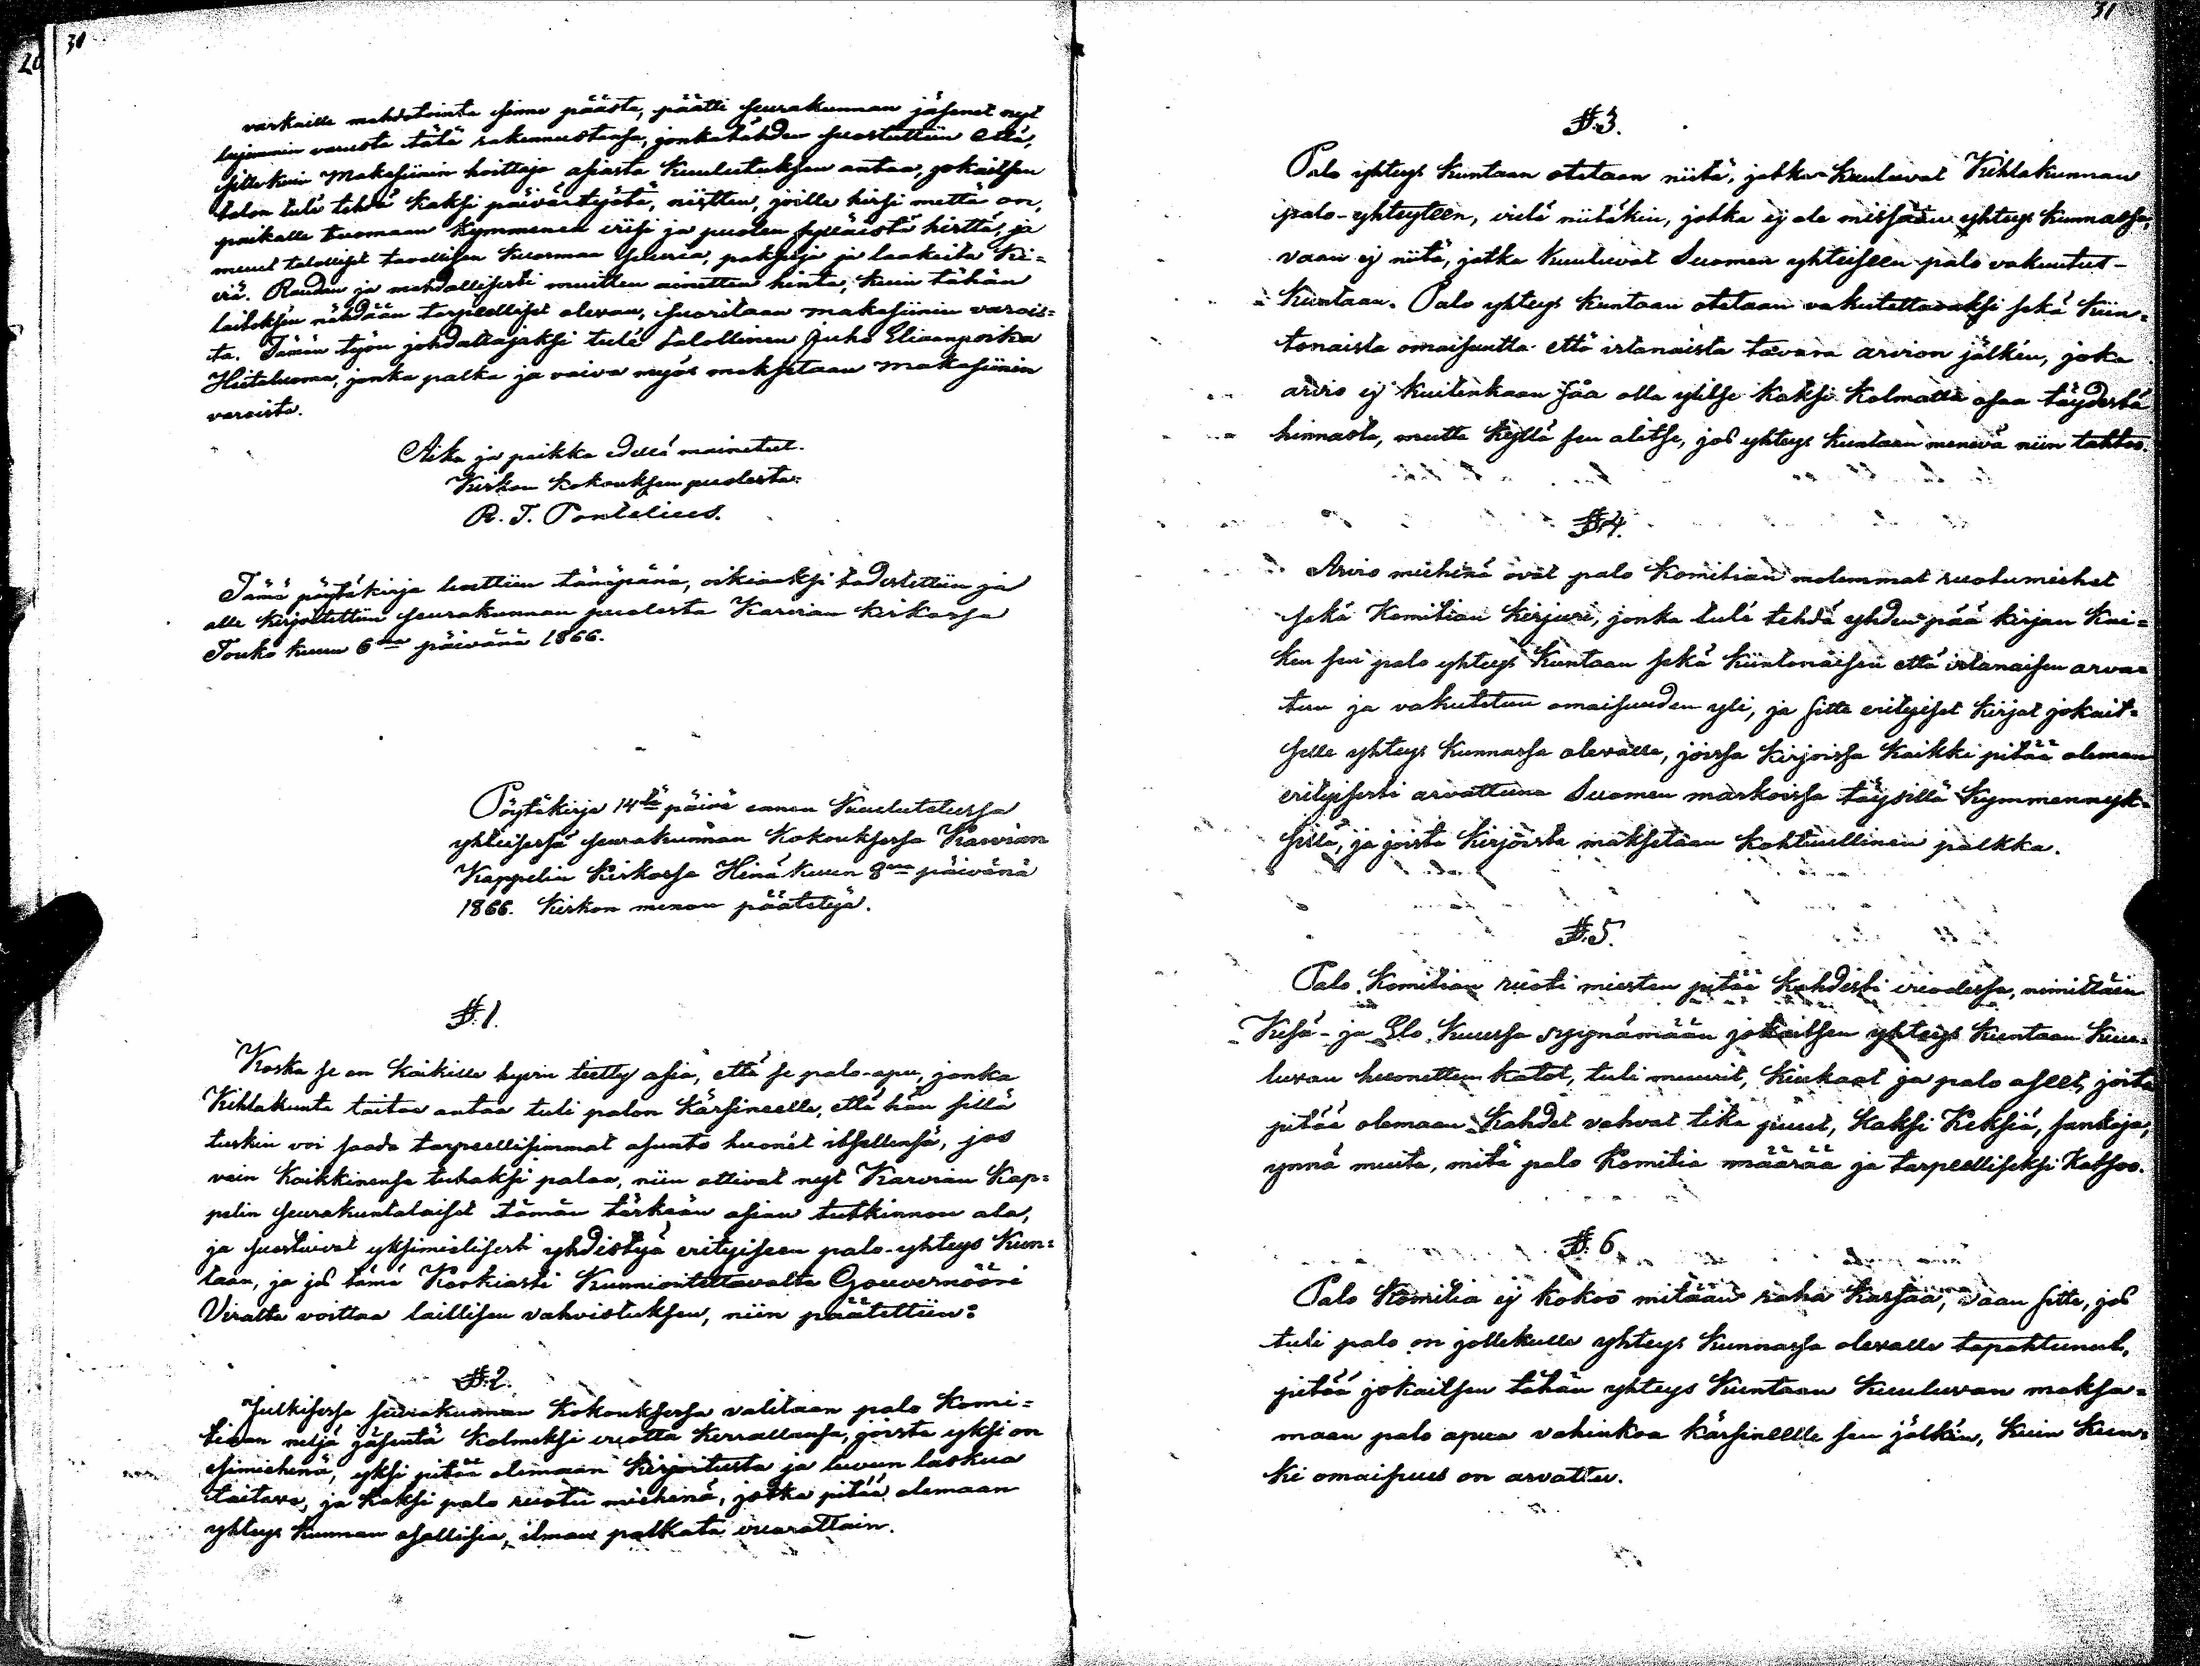 30
varkaille mahdotointa sinne päästä, päätti seurakunnan jäsenet nyt
lujemmin varusta tätä rakennustansa, jonkatähden suostuttiin että,
sitte kuin Makasiinin hoittaja asiasta kuulutuksen antaa, jokaitsen
talon tulé tehdä kaksi päivän työtä, niitten, joille hirsi mettä on,
paikalle tuomaan kymmenen viisi ja puolen syltäistä hirttä, ja
muut talolliset tavallisen kuorman suuria, paksuja ja laakeita Ki=
viä. Raudan ja mahdollisesti muitten ainetten hinta, kuin tähän
laitoksen nähdään tarpeelliset olevan, suoritaan makasiinin varois=
ta. Tämän työn johdattajaksi tulé talollinen Juho Elianpoika
Hietaluoma, jonka palka ja vaiva myös maksetaan makasiinin
varoista.
Aika ja paikka edellä mainetut.
Kirkon kokouksen puolesta:
R. T. Pontelius.
Tämä pöytäkirja luettiin tänäpänä, oikiaksi todistettiin ja
alle kirjoitettiin seurakunnan puolesta Karvian kirkossa
Touko kuun 6na päivänä 1866.
Pöytäkirja 14tä päivä ennen kuulutetussa
yhteisessä seurakunnan kokouksessa Karvian
Kappelin kirkossa Hinä kuun 8na päivänä
1866. kirkon menon päätetyä.
§. 1.
Koska se on kaikille hyvin tietty asia, että se palo-apu, jonka
Kihlakunta taitaa antaa tuli palon kärsineelle, että hän sillä
tuskin voi saada tarpeellisimmat asunto huonét itsellensä, jos
vain kaikkinensa tuhaksi palaa, niin ottivat nyt Karvian Kap=
pelin seurakuntalaiset tämän tärkeän asian tutkinnon ala,
ja suostuivat yksimielisesti yhdistyä erityiseen palo-yhteys kun=
taan, ja jos tämä Korkiasti kunnioitettavalta Gouvernööri
Viralta voittaa laillisen vahvistuksen, niin päätettiin:
§. 2.
Julkisessa seurakunnan kokouksessa valitaan palo komi=
tiaan neljä jäsentä kolmeksi vuotta kerrallansa, joista yksi on
esimiehenä, yksi pitää olemaan kirjoitusta ja luvun laskua
taitava, ja kaksi palo ruotu miehinä, jotka pitää olemaan
yhteys kunnan osallisia, ilman palkata vuorottain.
31
§. 3.
Palo yhteys kuntaan otetaan niitä, jotka kuuluvat Kihlakunnan
palo-yhteyteen, vielä niitäkin, jotka ej ole missään yhteys kunnassa,
vaan ej niitä, jotka kuuluvat Suomen yhteiseen palo vakuutus-
kuntaan. Palo yhteys kuntaan otetaan vakutettavaksi sekä kiin=
tonaista omaisuutta että irtanaista tavara arvion jälkén, joka
arvio ej kuitenkaan såa olla ylitse kaksi kolmatta osaa täydestä
hinnasta, mutta kyllä sen alitse, jos yhteys kuntaan menevä niin tahtoo.
§. 4.
Arvio miehinä ovat palo komitian molemmat ruotumiehet
sekä Komitian kirjuri, jonka tulé tehdä yhden pää kirjan kai=
ken sen palo yhteys kuntaan sekä kiintonaisen että irtanaisen arva=
tun ja vakutetun omaisuuden yli, ja sitte erityiset kirjat jokait=
selle yhteys kunnassa olevalle, joissa kirjoissa kaikki pitää oleman
erityisesti arvattuna Suomen markoissa täysillä kymmennyk=
sillä, ja joista kirjoista maksetaan kohtuullinen palkka.
§. 5.
Palo Komitian ruoti miesten pitää kahdesti vuodessa, nimittäin
Kesä- ja Elo kuussa syynämään jokaitsen yhteys kuntaan kuu=
luvan huonetten katot, tuli muurit, kiukaat ja palo aseet, joita
pitää olemaan kahdet vahvat tika puut, kaksi Keksiä, sankoja,
ynnä muuta, mitä palo Komitia määrää ja tarpeelliseksi katsoo.
§. 6
Palo Komitia ej kokoo mitään raha kassaa, vaan sitte, jos
tuli palo on jollekulle yhteys kunnassa olevalle tapahtunut,
pitää jokaitsen tähän yhteys kuntaan kuuluvan maksa=
maan palo apua vahinkoa kärsineelle sen jälkén, kuin kun=
ki omaisuus on arvattu.